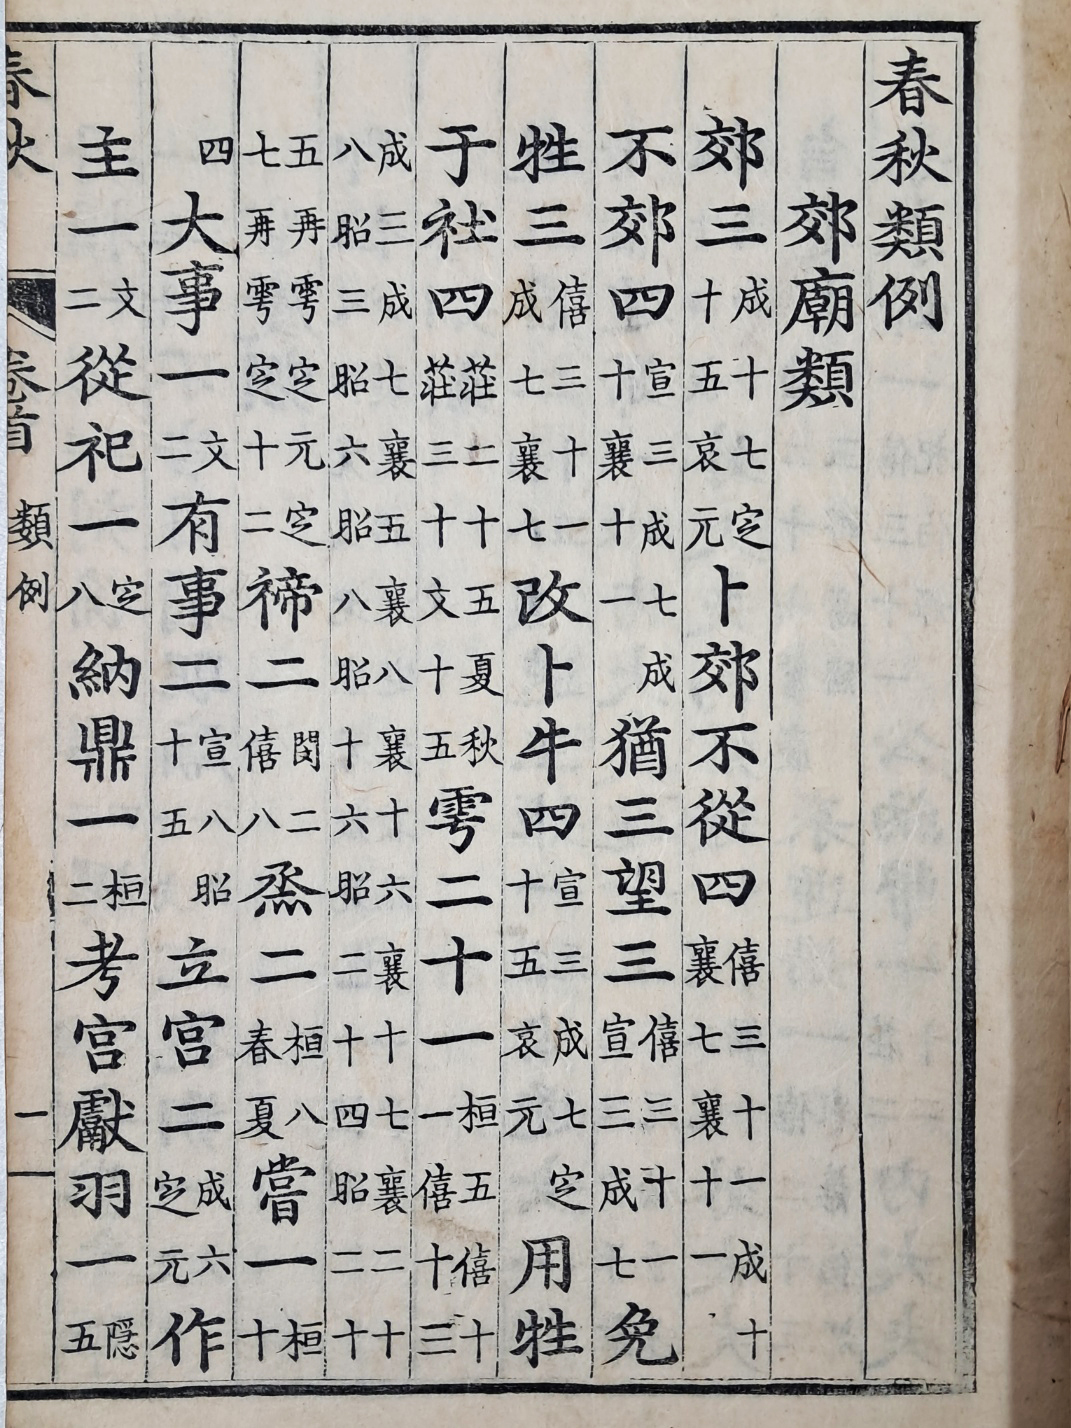 春秋類例
郊廟類
郊三成十七定十五哀元卜郊不從四僖三十一成十襄七襄十一
不郊四宣三成七成十襄十一猶三望三僖三十一宣三成七免
牲三僖三十一成七襄七改卜牛四宣三成七定十五哀元用牲
于社四莊二十五夏秋莊三十文十五雩二十一桓五僖十一僖十三
成三成七襄五襄八襄十六襄十七襄二十八昭三昭六昭八昭十六昭二十四昭二十
五再雩定元定七再雩定十二禘二閔二僖八烝二桓八春夏嘗一桓十
四大事一文二有事二宣八昭十五立宮二成六定元作
主一文二從祀一定八納鼎一桓二考宮獻羽一隱五
春秋 卷首 類例 一